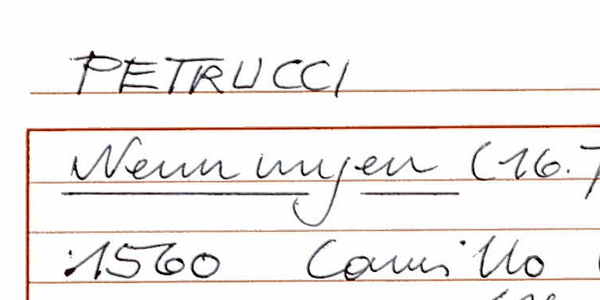 PETRUCCI
Nennungen (16.7
:1560 Camillo (